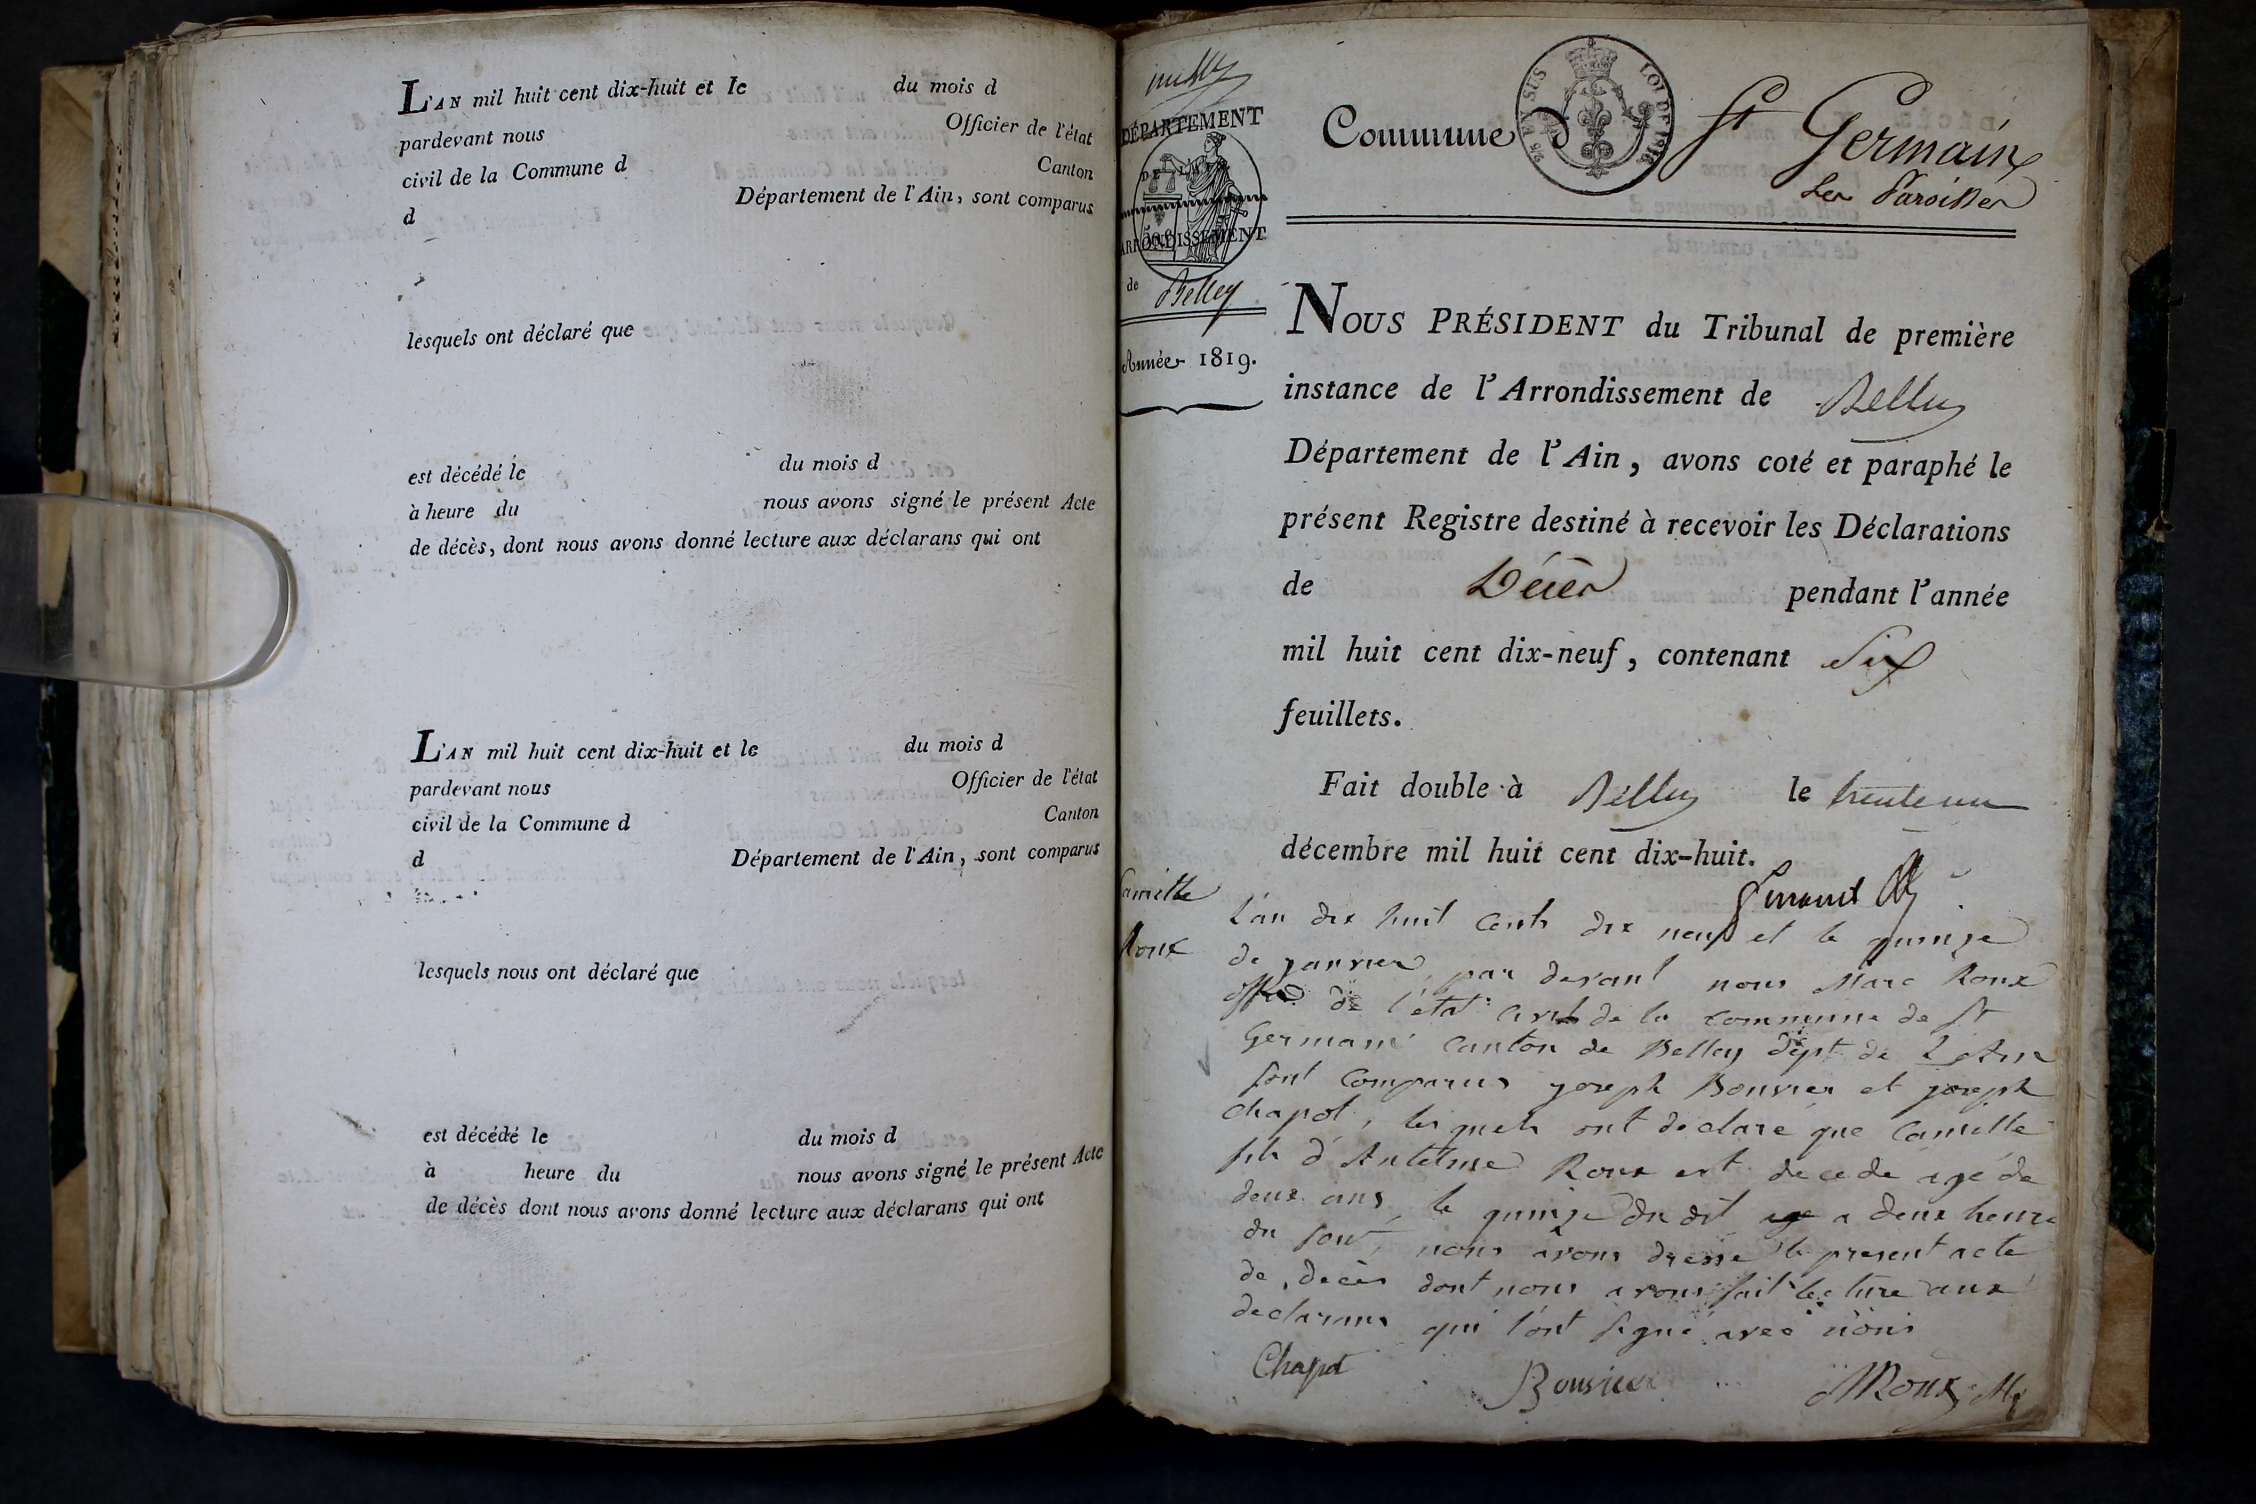 L'AN mil huit cent dix-huit et le du mois d
pardevant nous Officier de l'état
civil de la Commune d Canton
d Département de l'Ain, sont comparus
lesquels ont déclaré que
est décédé le du mois d
à heure du nous avons signé le présent Acte
de décès, dont nous avons donné lecture aux déclarans qui ont
L'AN mil huit cent dix-huit et le du mois d
pardevant nous Officier de l'état
civil de la Commune d Canton
d Département de l'Ain, sont comparus
lesquels nous ont déclaré que
est décédé le du mois d
à heure du nous avons signé le présent Acte
de décès dont nous avons donné lecture aux déclarans qui ont
DÉPARTEMENT
DE L'A
ARRONDISSEMENT
de Belley
Année 1819.
Commune d St Germain
Les Paroisses
LOI DE 1816
NOUS PRÉSIDENT du Tribunal de première
instance de l'Arrondissement de Belley
Département de l'Ain, avons coté et paraphé le
présent Registre destiné à recevoir les Déclarations
de Décès pendant l'année
mil huit cent dix-neuf, contenant Six
feuillets.
Fait double à Belley le trente un
décembre mil huit cent dix-huit.
Camille
Roux
L'an dix huit cents dix neuf et le quinze
de janvier par devant nous Marc Roux
de l'état civil de la commune de St
Germain canton de Belley dépt de L'Ain
sont comparus joseph Bouvier et joseph
Chapot, lesquels ont déclaré que Camille
fils d'Antelme Roux est decede agé de
deux ans, le quinze du dit a deux heure
du soir, nous avons dressé le present acte
de decès dont nous avons fait lecture aux
declarans qui l'ont signé avec nous
Chapot Bouvier MRoux